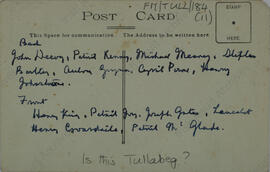 FM/TULL/184
(11)
POST CARD
This Space for communication.
The Address to be written here.
STAMP
HERE
Back
John Deevy, Patrick Kenny, Michael Meaney, Stephen
Bartley, Cyril Power, Henry
Johnstone.
Front
Henry King, Patrick Joy, Joseph Gates, Lancelot
Henry Coverdale, Patrick Mc Glade.
Is this Tullabeg?